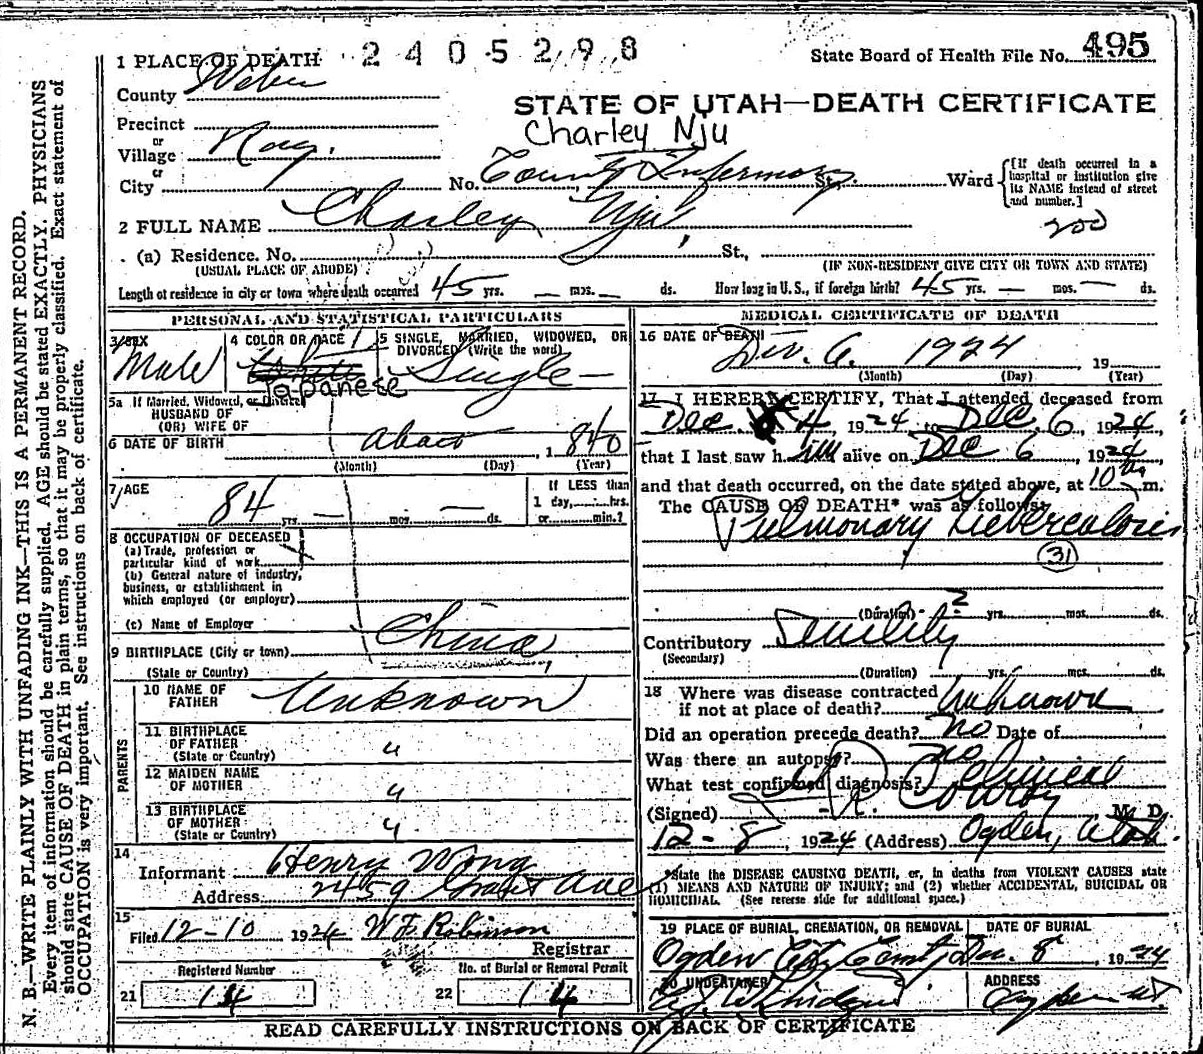 1 PLACE OF DEATH 2405298 State Board of Health File No. 495
County Weber
STATE OF UTAH—DEATH CERTIFICATE
Precinct
Charley Nju
or
Village Roy.
or
City No. County Infirmary St., Ward {[If death occurred in a hospital or institution give its NAME instead of street and number.]
2 FULL NAME Charley Nju
200
(a) Residence. No. St.,
(USUAL PLACE OF ABODE) (IF NON-RESIDENT GIVE CITY OR TOWN AND STATE)
Length of residence in city or town where death occurred 45 yrs. — mos. — ds. How long in U.S., if foreign birth? 45 yrs. — mos. — ds.
PERSONAL AND STATISTICAL PARTICULARS
3 SEX 4 COLOR OR RACE 5 SINGLE, MARRIED, WIDOWED, OR DIVORCED (Write the word)
Male White Single
Japanese
5a If Married, Widowed, or Divorced
HUSBAND OF
(OR) WIFE OF
6 DATE OF BIRTH about, 1840
(Month) (Day) (Year)
7 AGE If LESS than
84 yrs. — mos. — ds. 1 day,......hrs.
or......min.?
8 OCCUPATION OF DECEASED
(a) Trade, profession or
particular kind of work
(b) General nature of industry,
business, or establishment in
which employed (or employer)
(c) Name of Employer
9 BIRTHPLACE (City or town) China
(State or Country)
PARENTS
10 NAME OF
FATHER Unknown
11 BIRTHPLACE
OF FATHER "
(State or Country)
12 MAIDEN NAME
OF MOTHER "
13 BIRTHPLACE
OF MOTHER "
(State or Country)
14
Informant Henry Wong
Address 2459 Grant Ave
15
Filed 12-10 1924 W F Robinson
Registrar
Registered Number No. of Burial or Removal Permit
21 14 22 14
MEDICAL CERTIFICATE OF DEATH
16 DATE OF DEATH Dec. 6 1924 19
(Month) (Day) (Year)
17 I HEREBY CERTIFY, That I attended deceased from
Dec. 4, 1924 to Dec. 6, 1924
that I last saw him alive on Dec 6, 1924
and that death occurred, on the date stated above, at 10 m.
The CAUSE OF DEATH* was as follows:
Pulmonary Tuberculosis
31
(Duration) ? yrs. mos. ds.
Contributory Senility
(Secondary)
(Duration) yrs. mos. ds.
18 Where was disease contracted
if not at place of death? Unknown
Did an operation precede death? no Date of
Was there an autopsy? no
What test confirmed diagnosis? Clinical
(Signed) M. D.
12-8 1924 (Address) Ogden, Utah.
*State the DISEASE CAUSING DEATH, or, in deaths from VIOLENT CAUSES state
(1) MEANS AND NATURE OF INJURY; and (2) whether ACCIDENTAL, SUICIDAL OR
HOMICIDAL. (See reverse side for additional space.)
19 PLACE OF BURIAL, CREMATION, OR REMOVAL DATE OF BURIAL
Ogden City Cemty Dec. 8, 1924
20 UNDERTAKER ADDRESS
READ CAREFULLY INSTRUCTIONS ON BACK OF CERTIFICATE
N. B.—WRITE PLAINLY WITH UNFADING INK—THIS IS A PERMANENT RECORD.
Every item of information should be carefully supplied. AGE should be stated EXACTLY. PHYSICIANS
should state CAUSE OF DEATH in plain terms, so that it may be properly classified. Exact statement of
OCCUPATION is very important. See instructions on back of certificate.